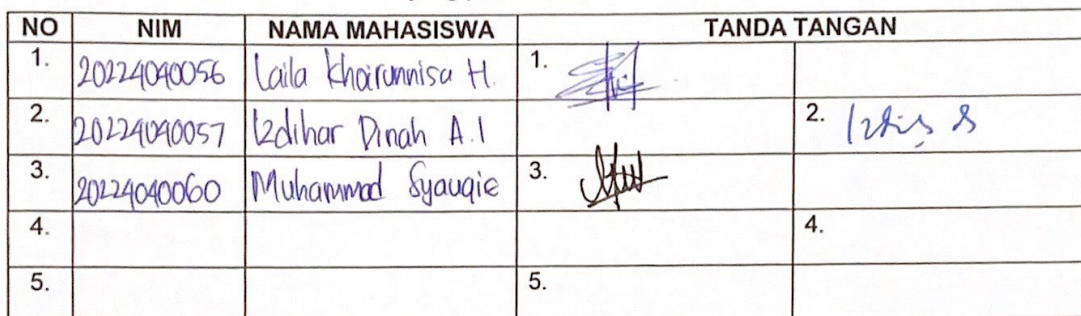 NO NIM NAMA MAHASISWA TANDA TANGAN
1. 20224040056 Laila Khairunnisa H. 1.
2. 20224040057 Izdihar Dinah A.I 2.
3. 20224040060 Muhammad Syauqie 3.
4. 4.
5. 5.